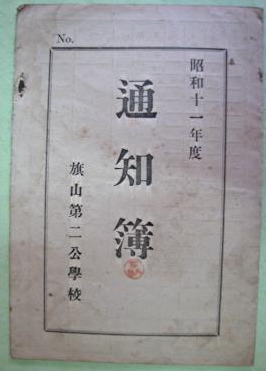 No.
昭和十一年度
通知簿
旗山第二公學校